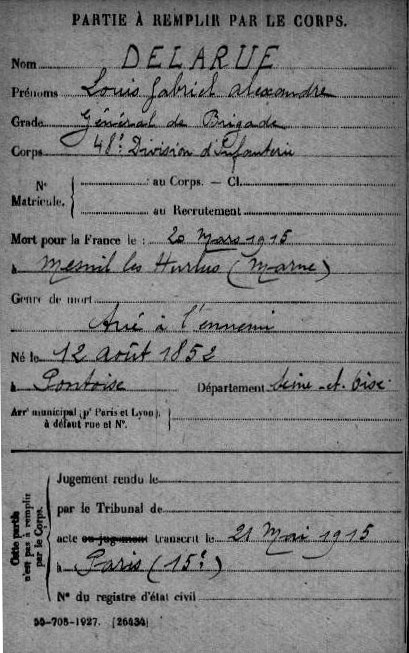 PARTIE À REMPLIR PAR LE CORPS.
Nom DELARUE
Prénoms Louis Gabriel Alexandre
Grade Général de Brigade
Corps 48e Division d'Infanterie
N° Matricule. au Corps. — Cl.
au Recrutement
Mort pour la France le : 20 Mars 1915
à Mesnil les Hurlus (Marne)
Genre de mort
Tué à l'ennemi
Né le 12 août 1852
à Pontoise Département Seine-et-Oise
Arrt municipal (pr Paris et Lyon), à défaut rue et N°.
Cette partie n'est pas à remplir par le Corps.
Jugement rendu le
par le Tribunal de
acte ou jugement transcrit le 21 Mai 1915
à Paris (15e)
N° du registre d'état civil
50-708-1927. [26434]